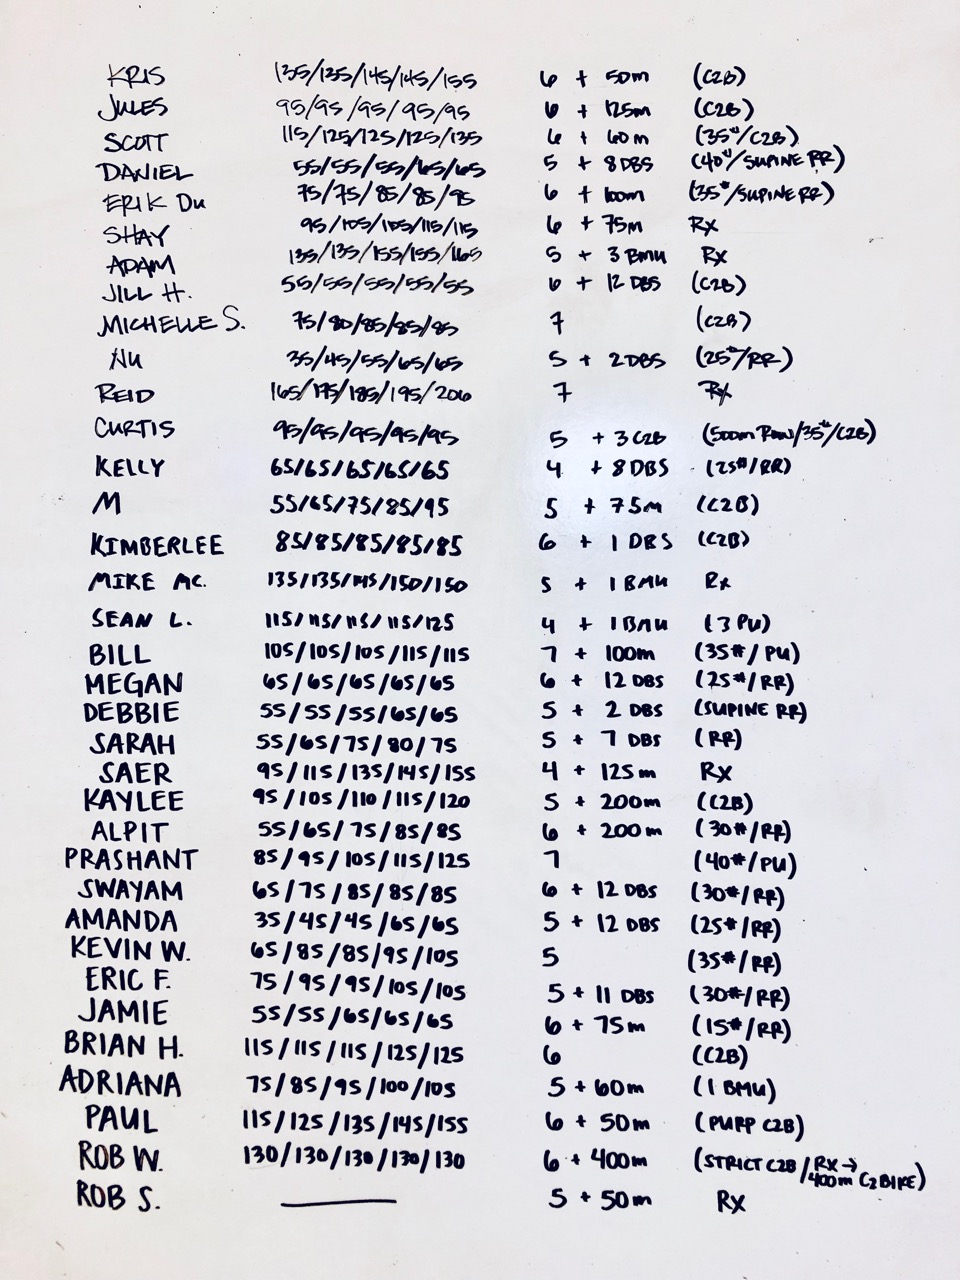 KRIS 135/135/145/145/155 6 + 50m (C2B)
JULES 95/95/95/95/95 6 + 125m (C2B)
SCOTT 115/125/125/125/135 6 + 60m (35#/C2B)
DANIEL 55/55/55/65/65 5 + 8 DBS (40#/SUPINE RR)
ERIK DU 75/75/85/85/95 6 + 100m (35#/SUPINE RR)
SHAY 95/105/105/115/115 6 + 75m Rx
ADAM 135/135/155/155/165 5 + 3 BMU Rx
JILL H. 55/55/55/55/55 6 + 12 DBS (C2B)
MICHELLE S. 75/80/85/85/85 7 (C2B)
NU 35/45/55/65/65 5 + 2 DBS (25#/RR)
REID 165/175/185/195/206 7 Rx
CURTIS 95/95/95/95/95 5 + 3 C2B (500m Row/35#/C2B)
KELLY 65/65/65/65/65 4 + 8 DBS (25#/RR)
M 55/65/75/85/95 5 + 75m (C2B)
KIMBERLEE 85/85/85/85/85 6 + 1 DBS (C2B)
MIKE MC. 135/135/145/150/150 5 + 1 BMU Rx
SEAN L. 115/115/115/115/125 4 + 1 BMU (3 PU)
BILL 105/105/105/115/115 7 + 100m (35#/PU)
MEGAN 65/65/65/65/65 6 + 12 DBS (25#/RR)
DEBBIE 55/55/55/65/65 5 + 2 DBS (SUPINE RR)
SARAH 55/65/75/80/75 5 + 7 DBS (RR)
SAER 95/115/135/145/155 4 + 125m Rx
KAYLEE 95/105/110/115/120 5 + 200m (C2B)
ALPIT 55/65/75/85/85 6 + 200m (30#/RR)
PRASHANT 85/95/105/115/125 7 (40#/PU)
SWAYAM 65/75/85/85/85 6 + 12 DBS (30#/RR)
AMANDA 35/45/45/65/65 5 + 12 DBS (25#/RR)
KEVIN W. 65/85/85/95/105 5 (35#/RR)
ERIC F. 75/95/95/105/105 5 + 11 DBS (30#/RR)
JAMIE 55/55/65/65/65 6 + 75m (15#/RR)
BRIAN H. 115/115/115/125/125 6 (C2B)
ADRIANA 75/85/95/100/105 5 + 60m (1 BMU)
PAUL 115/125/135/145/155 6 + 50m (PURP C2B)
ROB W. 130/130/130/130/130 6 + 400m (STRICT C2B/RX→
400m C2 BIKE)
ROB S. 5 + 50m Rx